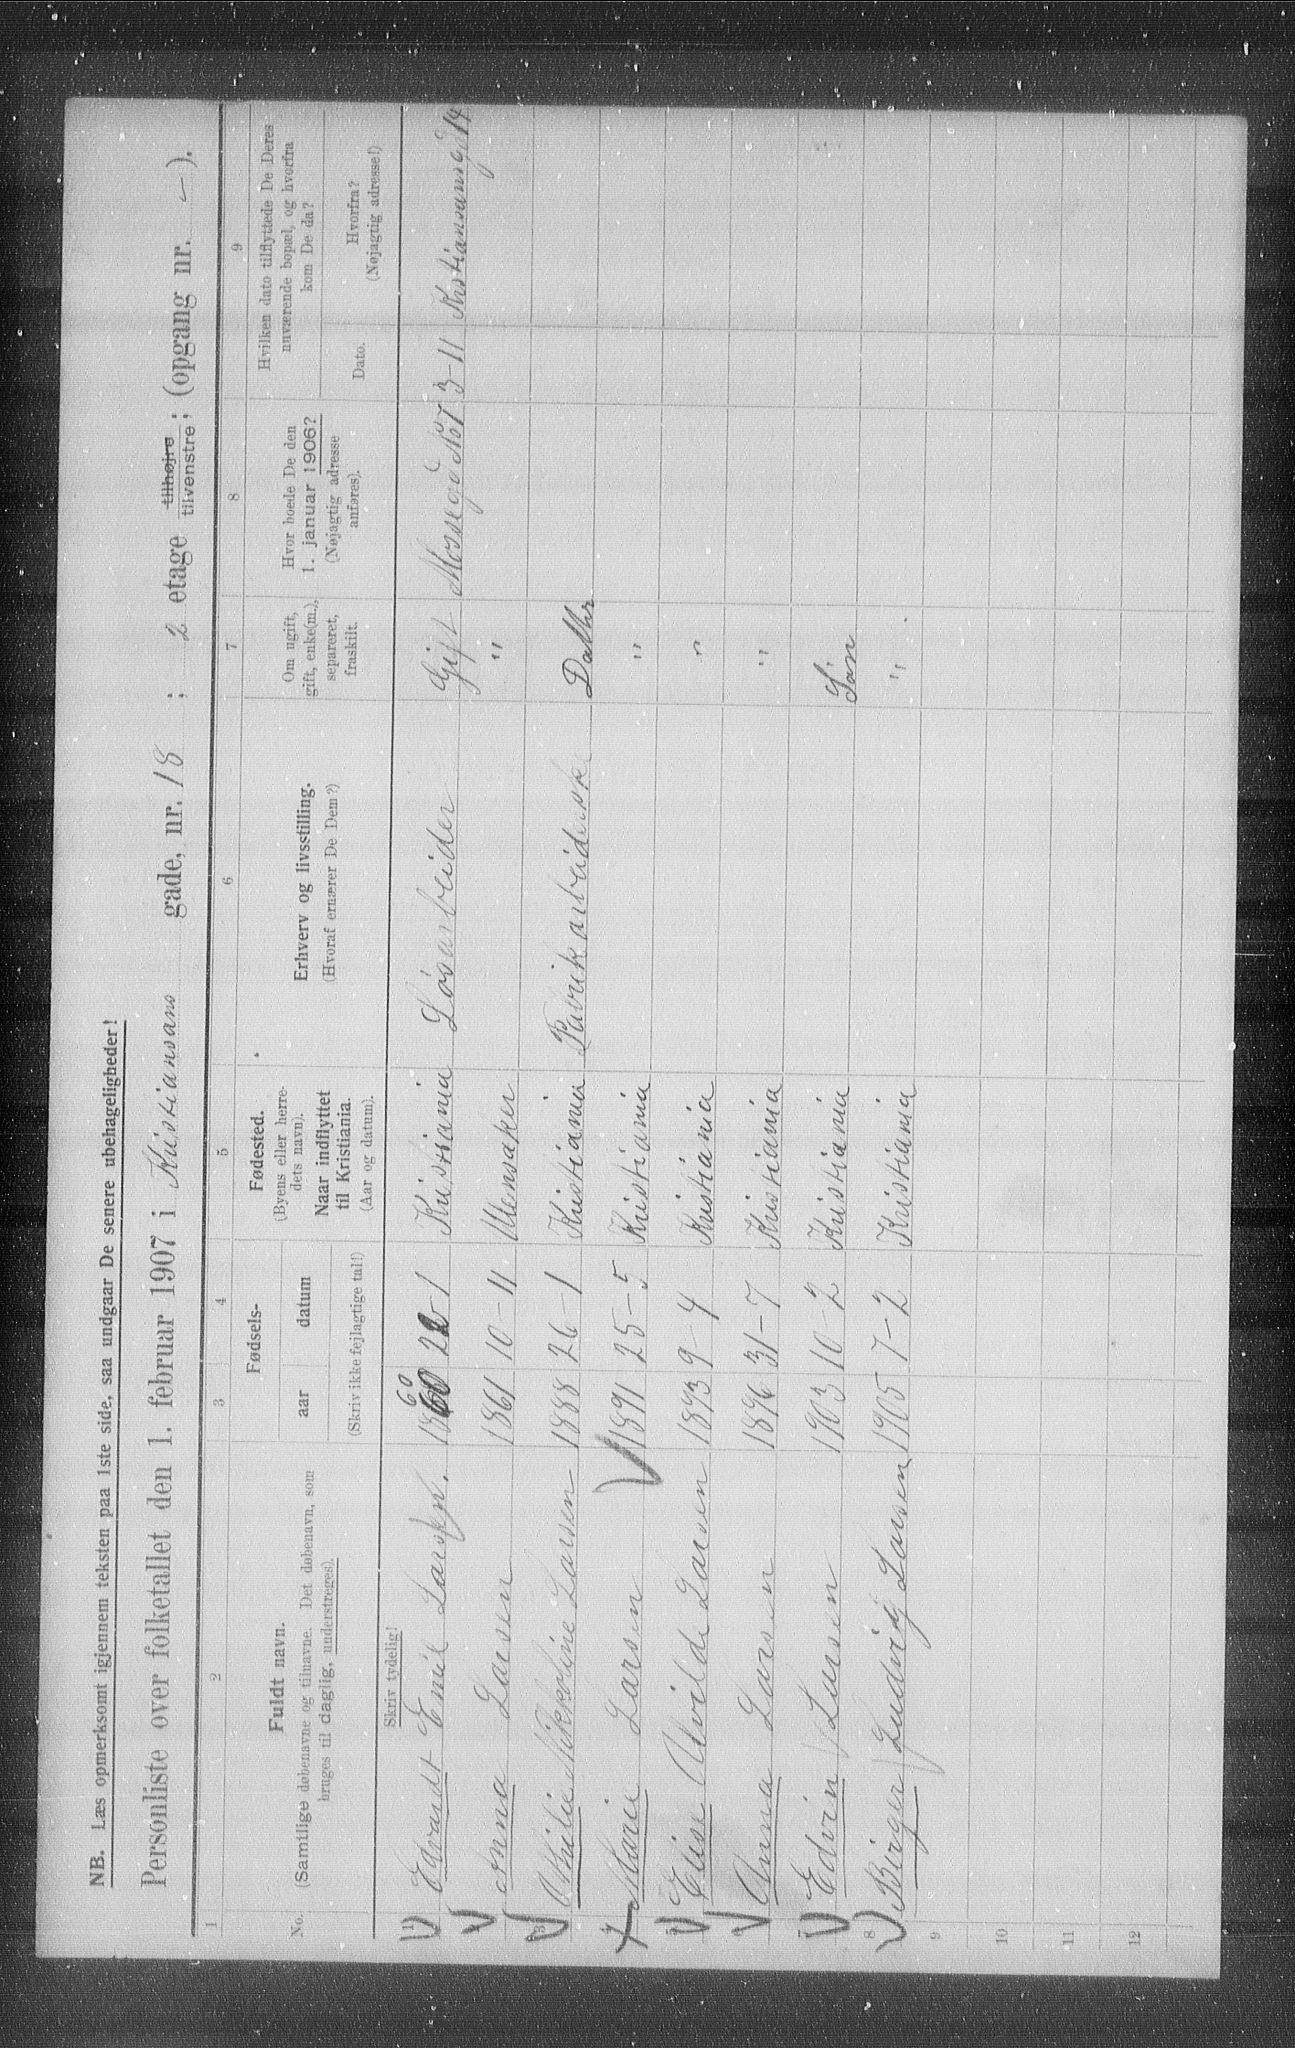 NB. Læs opmerksomt igjennem teksten paa 1ste side, saa undgaar De senere ubehageligheder!
Personliste over folketallet den 1. februar 1907 i Kristiansans gade, nr. 18 ; 2 etage tilhøjre ; tilvenstre ; (opgang nr. — ).
1 2 3 4 5 6 7 8 9
No.
Fuldt navn.
(Samtlige døbenavne og tilnavne. Det døbenavn, som
bruges til daglig, understreges).
Fødsels-
aar datum
(Skriv ikke fejlagtige tal!)
Fødested.
(Byens eller herre-
dets navn).
Naar indflyttet
til Kristiania.
(Aar og datum).
Erhverv og livsstilling.
(Hvoraf ernærer De Dem?)
Om ugift,
gift, enke(m.),
separeret,
fraskilt.
Hvor boede De den
1. januar 1906?
(Nøjagtig adresse
anføres).
Hvilken dato tilflyttede De Deres
nuværende bopæl, og hvorfra
kom De da?
Dato.
Hvorfra?
(Nøjagtig adresse!)
Skriv tydelig!
1 Edvardt Emil Larsen. 1860 60 22-1 Kristiania Løsarbeider Gift Mossegd No 7 3-11 Kristiansansgd 14
Anna Larsen 1861 10-11 Ullensaker "
3 Othilie Nikkoline Larsen 1888 26-1 Kristiania Fabrikarbeiderske Datter
Marie Larsen 1891 25-5 Kristiania "
5 Elise Alvilde Larsen 1893 9 4 Kristiania "
6 Anna Larsen 1896 31-7 Kristiania "
7 Edvin Larsen 1903 10-2 Kristiania Søn
8 Birger Ludvig Larsen 1905 7-2 Kristiania "
9
10
11
12